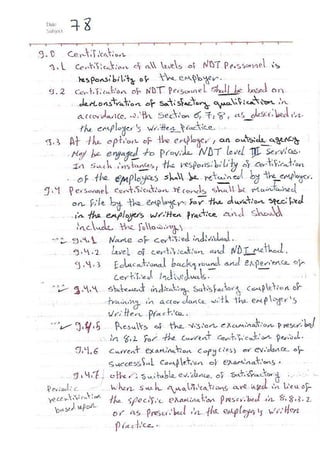 Date:
Subject:
78
9.0 Certification
9.1 Certification of all levels of NDT Personnel is
responsibility of the employer.
9.2 Certification of NDT Personnel shall be based on
demonstration of satisfactory qualification in
accordance with Section 6, 7, 8, as described in
the employer's written practice.
9.3 At the option of the employer, an outside agency
may be engaged to provide NDT level III services.
In such instances, the responsibility of certification
of the employees shall be retained by the employer.
9.4 Personnel certification records shall be maintained
on file by the employer for the duration specified
in the employers written practice and should
include the following:
9.4.1 Name of certified individual.
9.4.2 Level of certification and NDT Method.
9.4.3 Educational background and experience of
certified individuals.
9.4.4 Statement indicating satisfactory completion of
training in accordance with the employer's
written practice.
9.4.5 Results of the vision examination prescribed
in 8.2 for the current certification period.
9.4.6 Current examination copy(ies) or evidence of
successful completion of examinations.
9.4.7 other suitable evidence of satisfactory
Periodic when such qualifications are used in lieu of
recertification the specific examination prescribed in 8.8.3.2
based upon or as prescribed in the employer's written
practice.